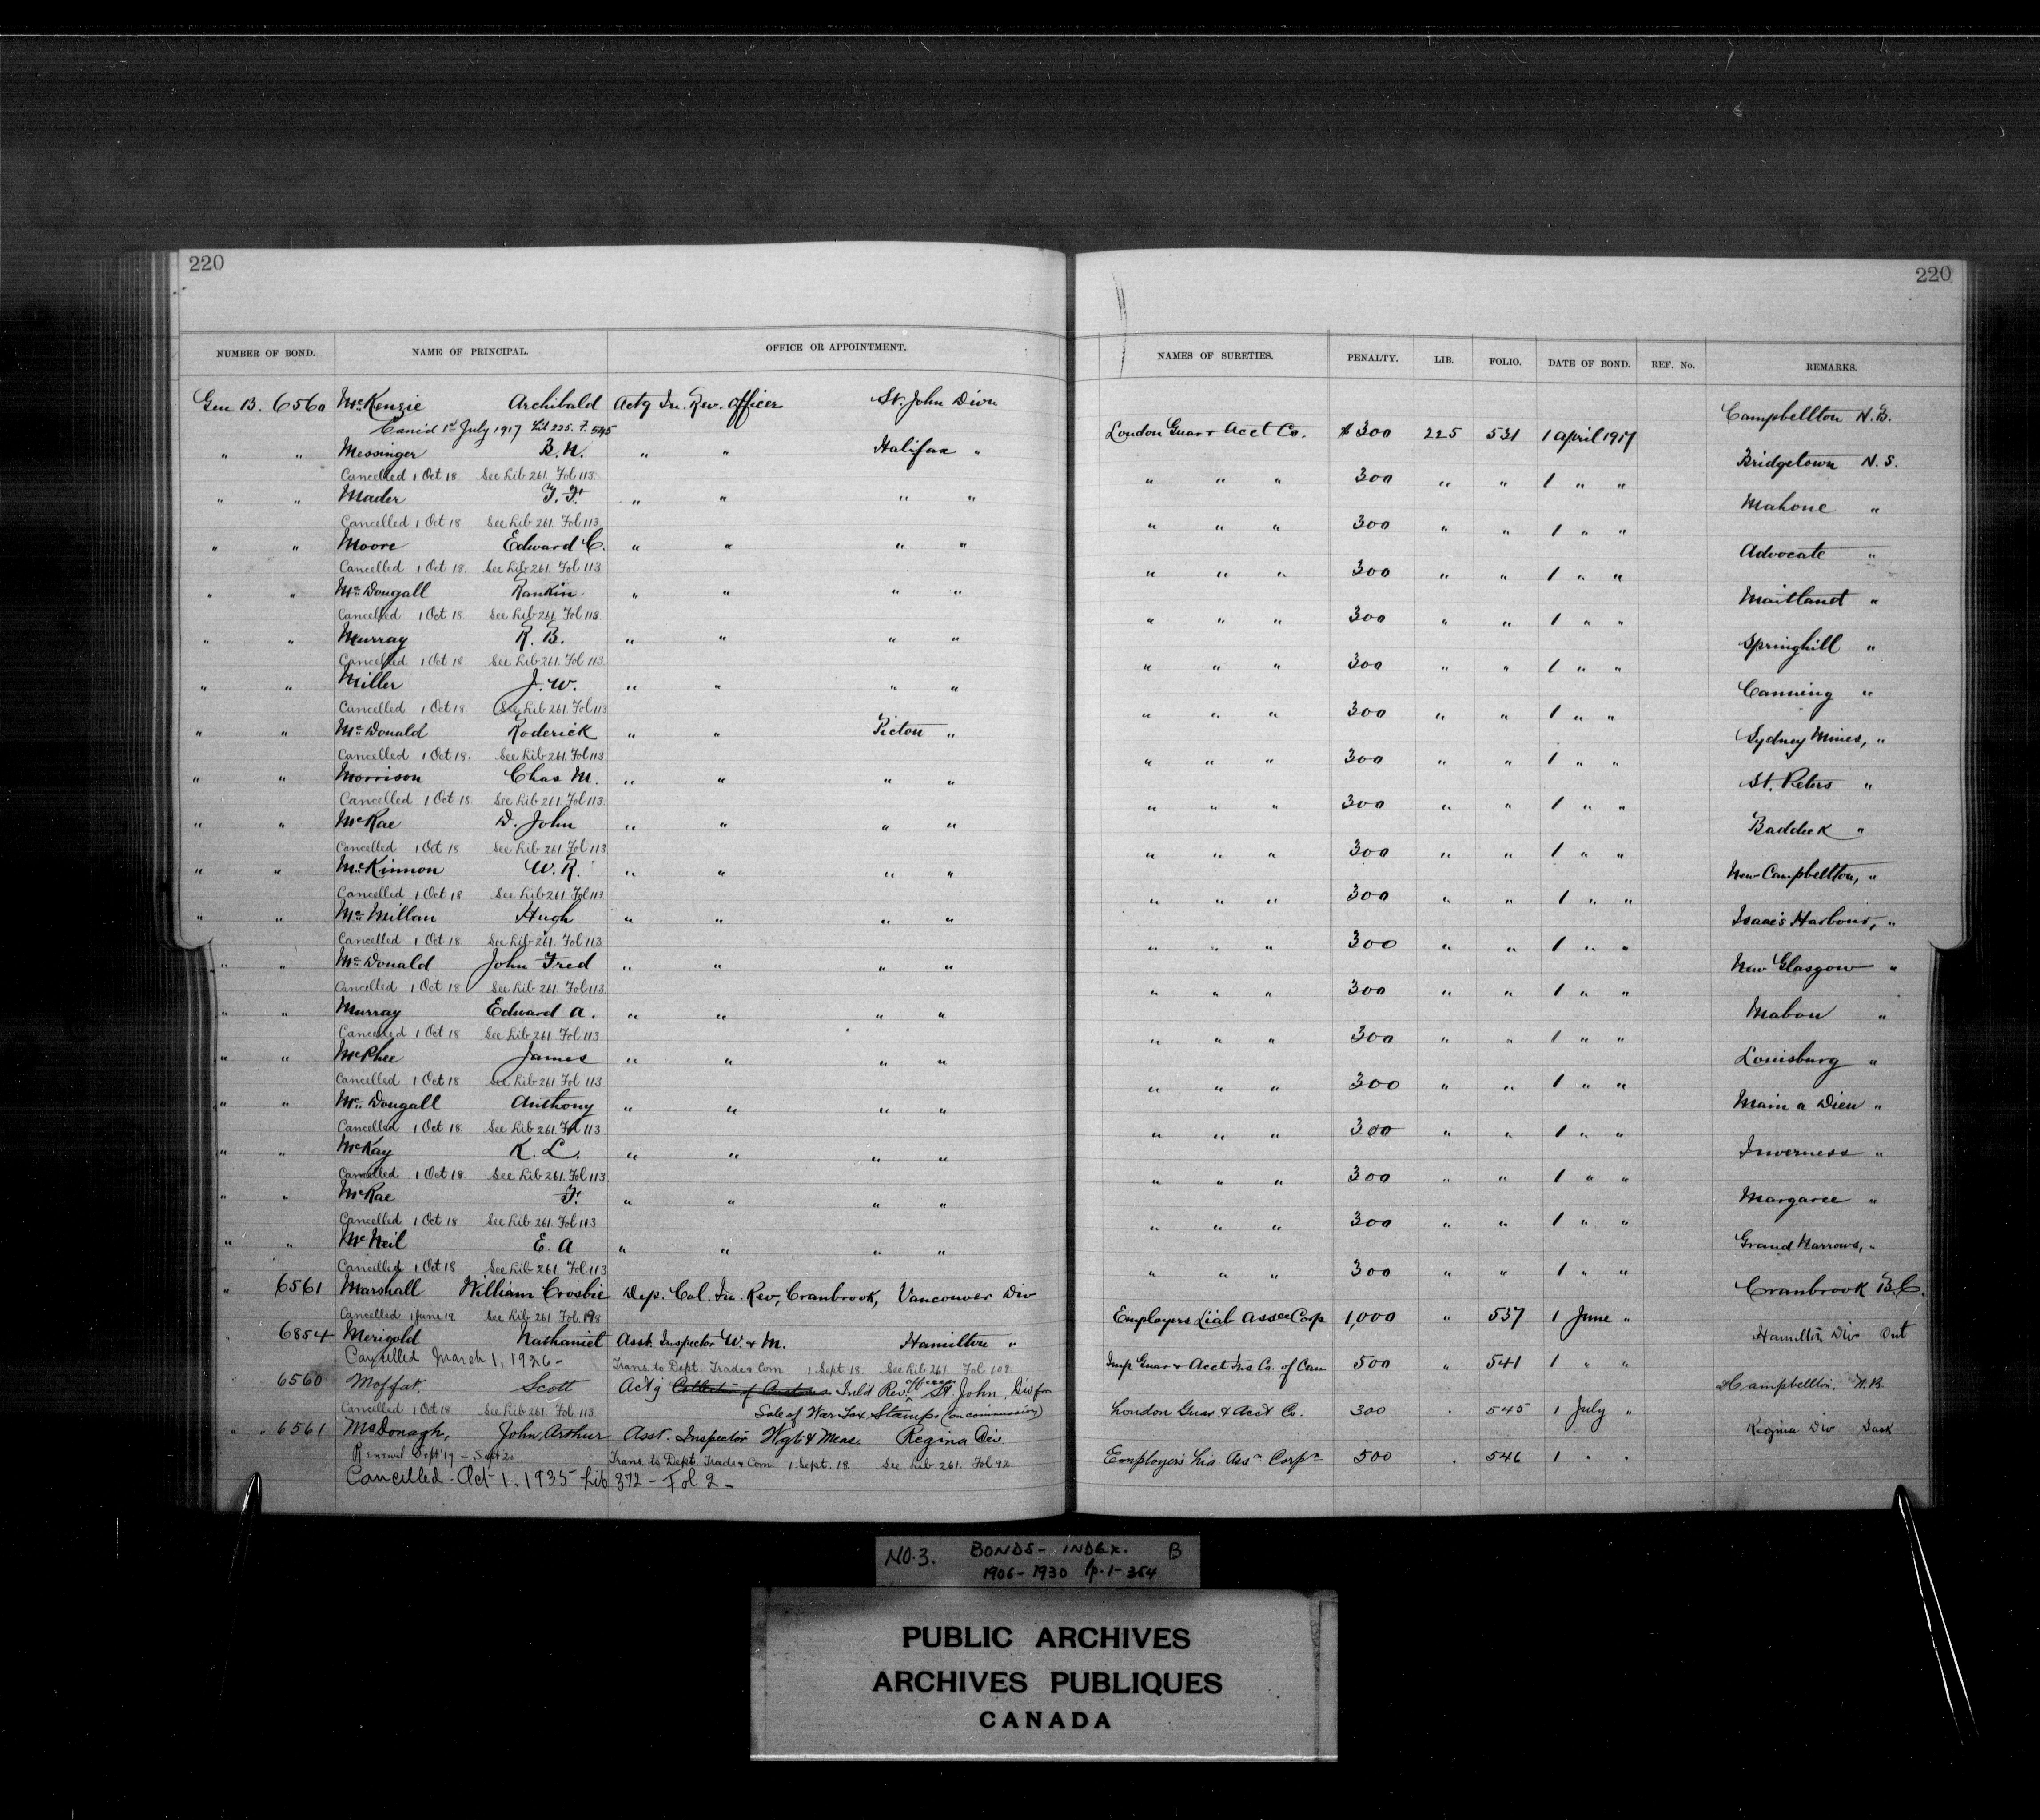 220
220
NUMBER OF BOND. NAME OF PRINCIPAL. OFFICE OR APPOINTMENT. NAMES OF SURETIES. PENALTY. LIB. FOLIO. DATE OF BOND. REF. No. REMARKS.
Gen B. 6560 McKenzie Archibald Actg In. Rev. Officer St. John Divn London Guar & Acct Co. $300 225 531 1 April 1917 Campbellton N.B.
Canc'd 1st July 1917 Lib 225. F. 545
" " Messinger B. N. " " Halifax " " " " 300 " " 1 " " Bridgetown N. S.
Cancelled 1 Oct 18 See Lib 261. Fol 113.
" " Mader T. F. " " " " " " " 300 " " 1 " " Mahone "
Cancelled 1 Oct 18 See Lib 261. Fol 113
" " Moore Edward C. " " " " " " " 300 " " 1 " " Advocate "
Cancelled 1 Oct 18. See Lib 261. Fol 113
" " McDougall Rankin " " " " " " " 300 " " 1 " " Maitland "
Cancelled 1 Oct 18 See Lib 261 Fol 113.
" " Murray R. B. " " " " " " " 300 " " 1 " " Springhill "
Cancelled 1 Oct 18 See Lib 261. Fol 113.
" " Miller J. W. " " " " " " " 300 " " 1 " " Canning "
Cancelled 1 Oct 18. See Lib 261. Fol 113
" " McDonald Roderick " " Picton " " " " 300 " " 1 " " Sydney Mines, "
Cancelled 1 Oct 18. See Lib 261. Fol 113.
" " Morrison Chas M. " " " " " " " 300 " " 1 " " St. Peters "
Cancelled 1 Oct 18 See Lib 261. Fol 113.
" " McRae D. John " " " " " " " 300 " " 1 " " Baddeck "
Cancelled 1 Oct 18 See Lib 261 Fol 113
" " McKinnon W. R. " " " " " " " 300 " " 1 " " New Campbellton, "
Cancelled 1 Oct 18 See Lib 261. Fol 113
" " McMillan Hugh " " " " " " " 300 " " 1 " " Isaac's Harbour, "
Cancelled 1 Oct 18. See Lib 261. Fol 113
" " McDonald John Fred " " " " " " " 300 " " 1 " " New Glasgow "
Cancelled 1 Oct 18 See Lib 261. Fol 113.
" " Murray Edward A. " " " " " " " 300 " " 1 " " Mabou "
Cancelled 1 Oct 18 See Lib 261. Fol 113.
" " McPhee James " " " " " " " 300 " " 1 " " Louisburg "
Cancelled 1 Oct 18 See Lib 261 Fol 113
" " McDougall Anthony " " " " " " " 300 " " 1 " " Main a Dieu "
Cancelled 1 Oct 18. See Lib 261. Fol 113.
" " McKay K. L. " " " " " " " 300 " " 1 " " Inverness "
Cancelled 1 Oct 18. See Lib 261. Fol 113.
" " McRae F. " " " " " " " 300 " " 1 " " Margaree "
Cancelled 1 Oct 18 See Lib 261. Fol 113
" " McNeil E. A " " " " " " " 300 " " 1 " " Grand Narrows, "
Cancelled 1 Oct 18 See Lib 261. Fol 113
" 6561 Marshall William Crosbie Dep. Col. In. Rev, Cranbrook, Vancouver Div Employers Liab Assce Corp 1,000 " 537 1 June " Cranbrook B.C.
Cancelled 1 June 19 See Lib 261 Fol.
" 6854 Merigold Nathaniel Asst Inspector W. & M. Hamilton " Imp Guar & Acct Ins Co. of Can 500 " 541 1 " " Hamilton Div Ont
Cancelled March 1, 1926 - Trans. to Dept. Trade & Com 1 Sept. 18. See Lib 261. Fol 109
" " 6560 Moffat, Scott Actg Collector of Customs Inl'd Rev. officer St. John Div for London Guar & Acct Co. 300 " 545 1 July " Campbellton. N.B.
Cancelled 1 Oct 18 See Lib 261. Fol 113. Sale of War Tax Stamps (on commission)
" " 6561 McDonagh, John, Arthur Asst. Inspector Wgts & Meas. Regina Div. Employers Lia Assn Corpn 500 " 546 1 " " Regina Div Sask
Renewal Sept '19 - Sept 20. Trans. to Dept. Trade & Com 1 Sept. 18. See Lib 261. Fol 92.
Cancelled Oct 1. 1935 Lib 372 - Fol 2 -
NO. 3. BONDS - INDEX. B
1906 - 1930 p. 1 - 354
PUBLIC ARCHIVES
ARCHIVES PUBLIQUES
CANADA